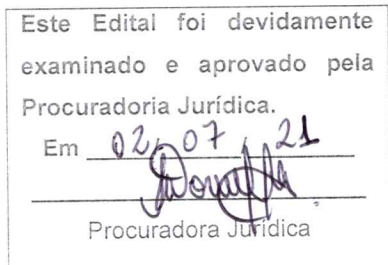 Este Edital foi devidamente
examinado e aprovado pela
Procuradoria Jurídica.
Em 02, 07, 21
Procuradora Jurídica